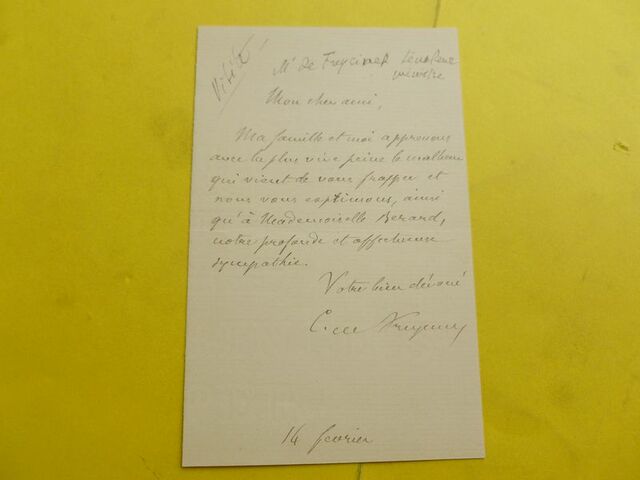 Visité
Mr de Freycinet sénateur
ministre
Mon cher ami,
Ma famille et moi apprenons
avec la plus vive peine le malheur
qui vient de vous frapper et
nous vous exprimons, ainsi
qu'à Mademoiselle Berard,
notre profonde et affectueuse
sympathie.
Votre bien dévoué
C. de Freycinet
14 février